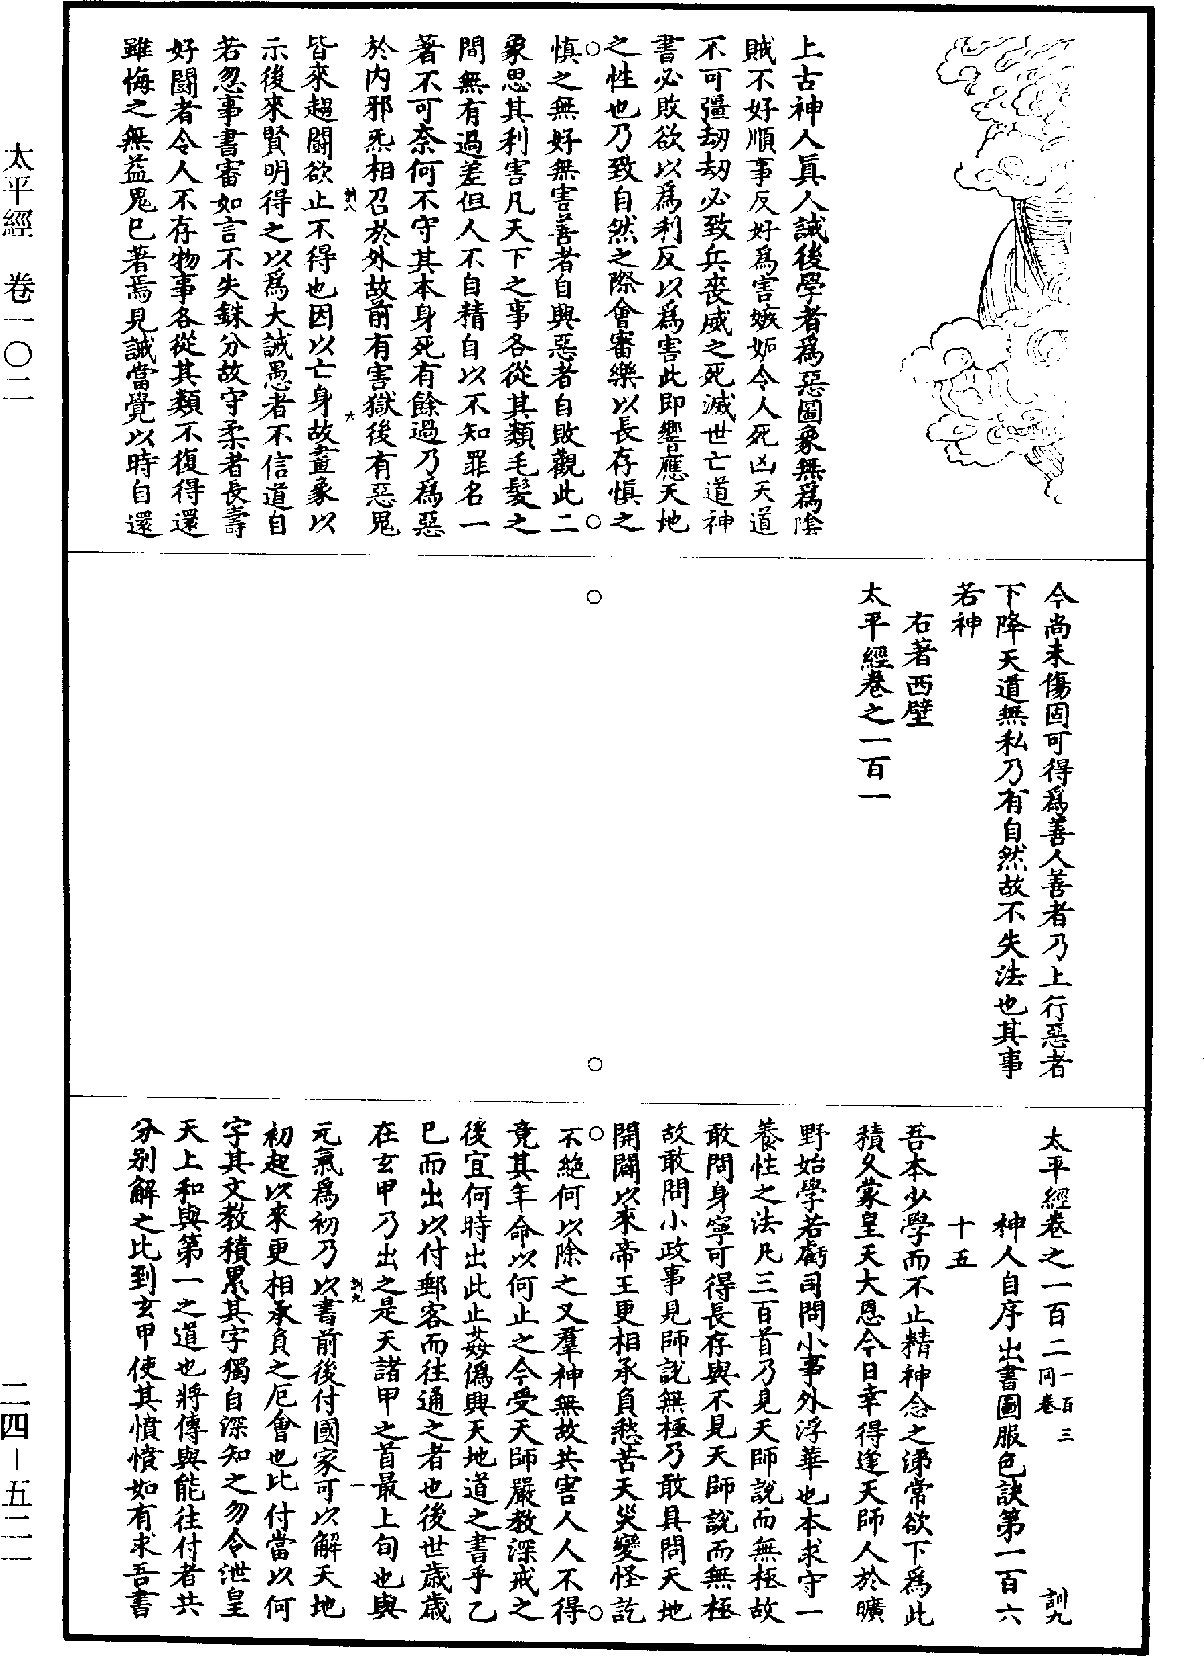 太平經　卷一〇二
二四－五二一
上古神人眞人誡後學者爲惡圖象無爲陰
賊不好順事反好爲害嫉妬令人死凶天道
不可彊劫劫必致兵喪威之死滅世亡道神
書必敗欲以爲利反以爲害此即響應天地
之性也乃致自然之際會審樂以長存慎之
慎之無好無害善者自興惡者自敗觀此二
象思其利害凡天下之事各從其類毛髮之
間無有過差但人不自精自以不知罪名一
著不可奈何不守其本身死有餘過乃爲惡
於内邪炁相召於外故前有害獄後有惡鬼
皆來趨鬬欲止不得也因以亡身故畫象以
訓八　六
示後來賢明得之以爲大誡愚者不信道自
若忽事書審如言不失銖分故守柔者長壽
好鬬者令人不存物事各從其類不復得還
雖悔之無益鬼已著焉見誡當覺以時自還
今尚未傷固可得爲善人善者乃上行惡者
下降天道無私乃有自然故不失法也其事
若神
右著西壁
太平經卷之一百一
太平經卷之一百二 一百三同卷　訓九
神人自序出書圖服色訣第一百六
十五
吾本少學而不止精神念之涕常欲下爲此
積久蒙皇天大恩今日幸得逢天師人於曠
野始學若虧司問小事外浮華也本求守一
養性之法凡三百首乃見天師說而無極故
敢問身寧可得長存與不見天師說而無極
故敢問小政事見師說無極乃敢具問天地
開闢以來帝王更相承負愁苦天災變怪訖
不絕何以除之又羣神無故共害人人不得
竟其年命以何止之今受天師嚴教深戒之
後宜何時出此止姦僞興天地道之書乎乙
巳而出以付郵客而往通之者也後世歲歲
在玄甲乃出之是天諸甲之首最上旬也與
元氣爲初乃以書前後付國家可以解天地
訓九　一
初起以來更相承負之厄會也比付當以何
字其文教積累其字獨自深知之勿令泄皇
天上和與第一之道也將傳與能往付者共
分別解之比到玄甲使其憤憤如有求吾書